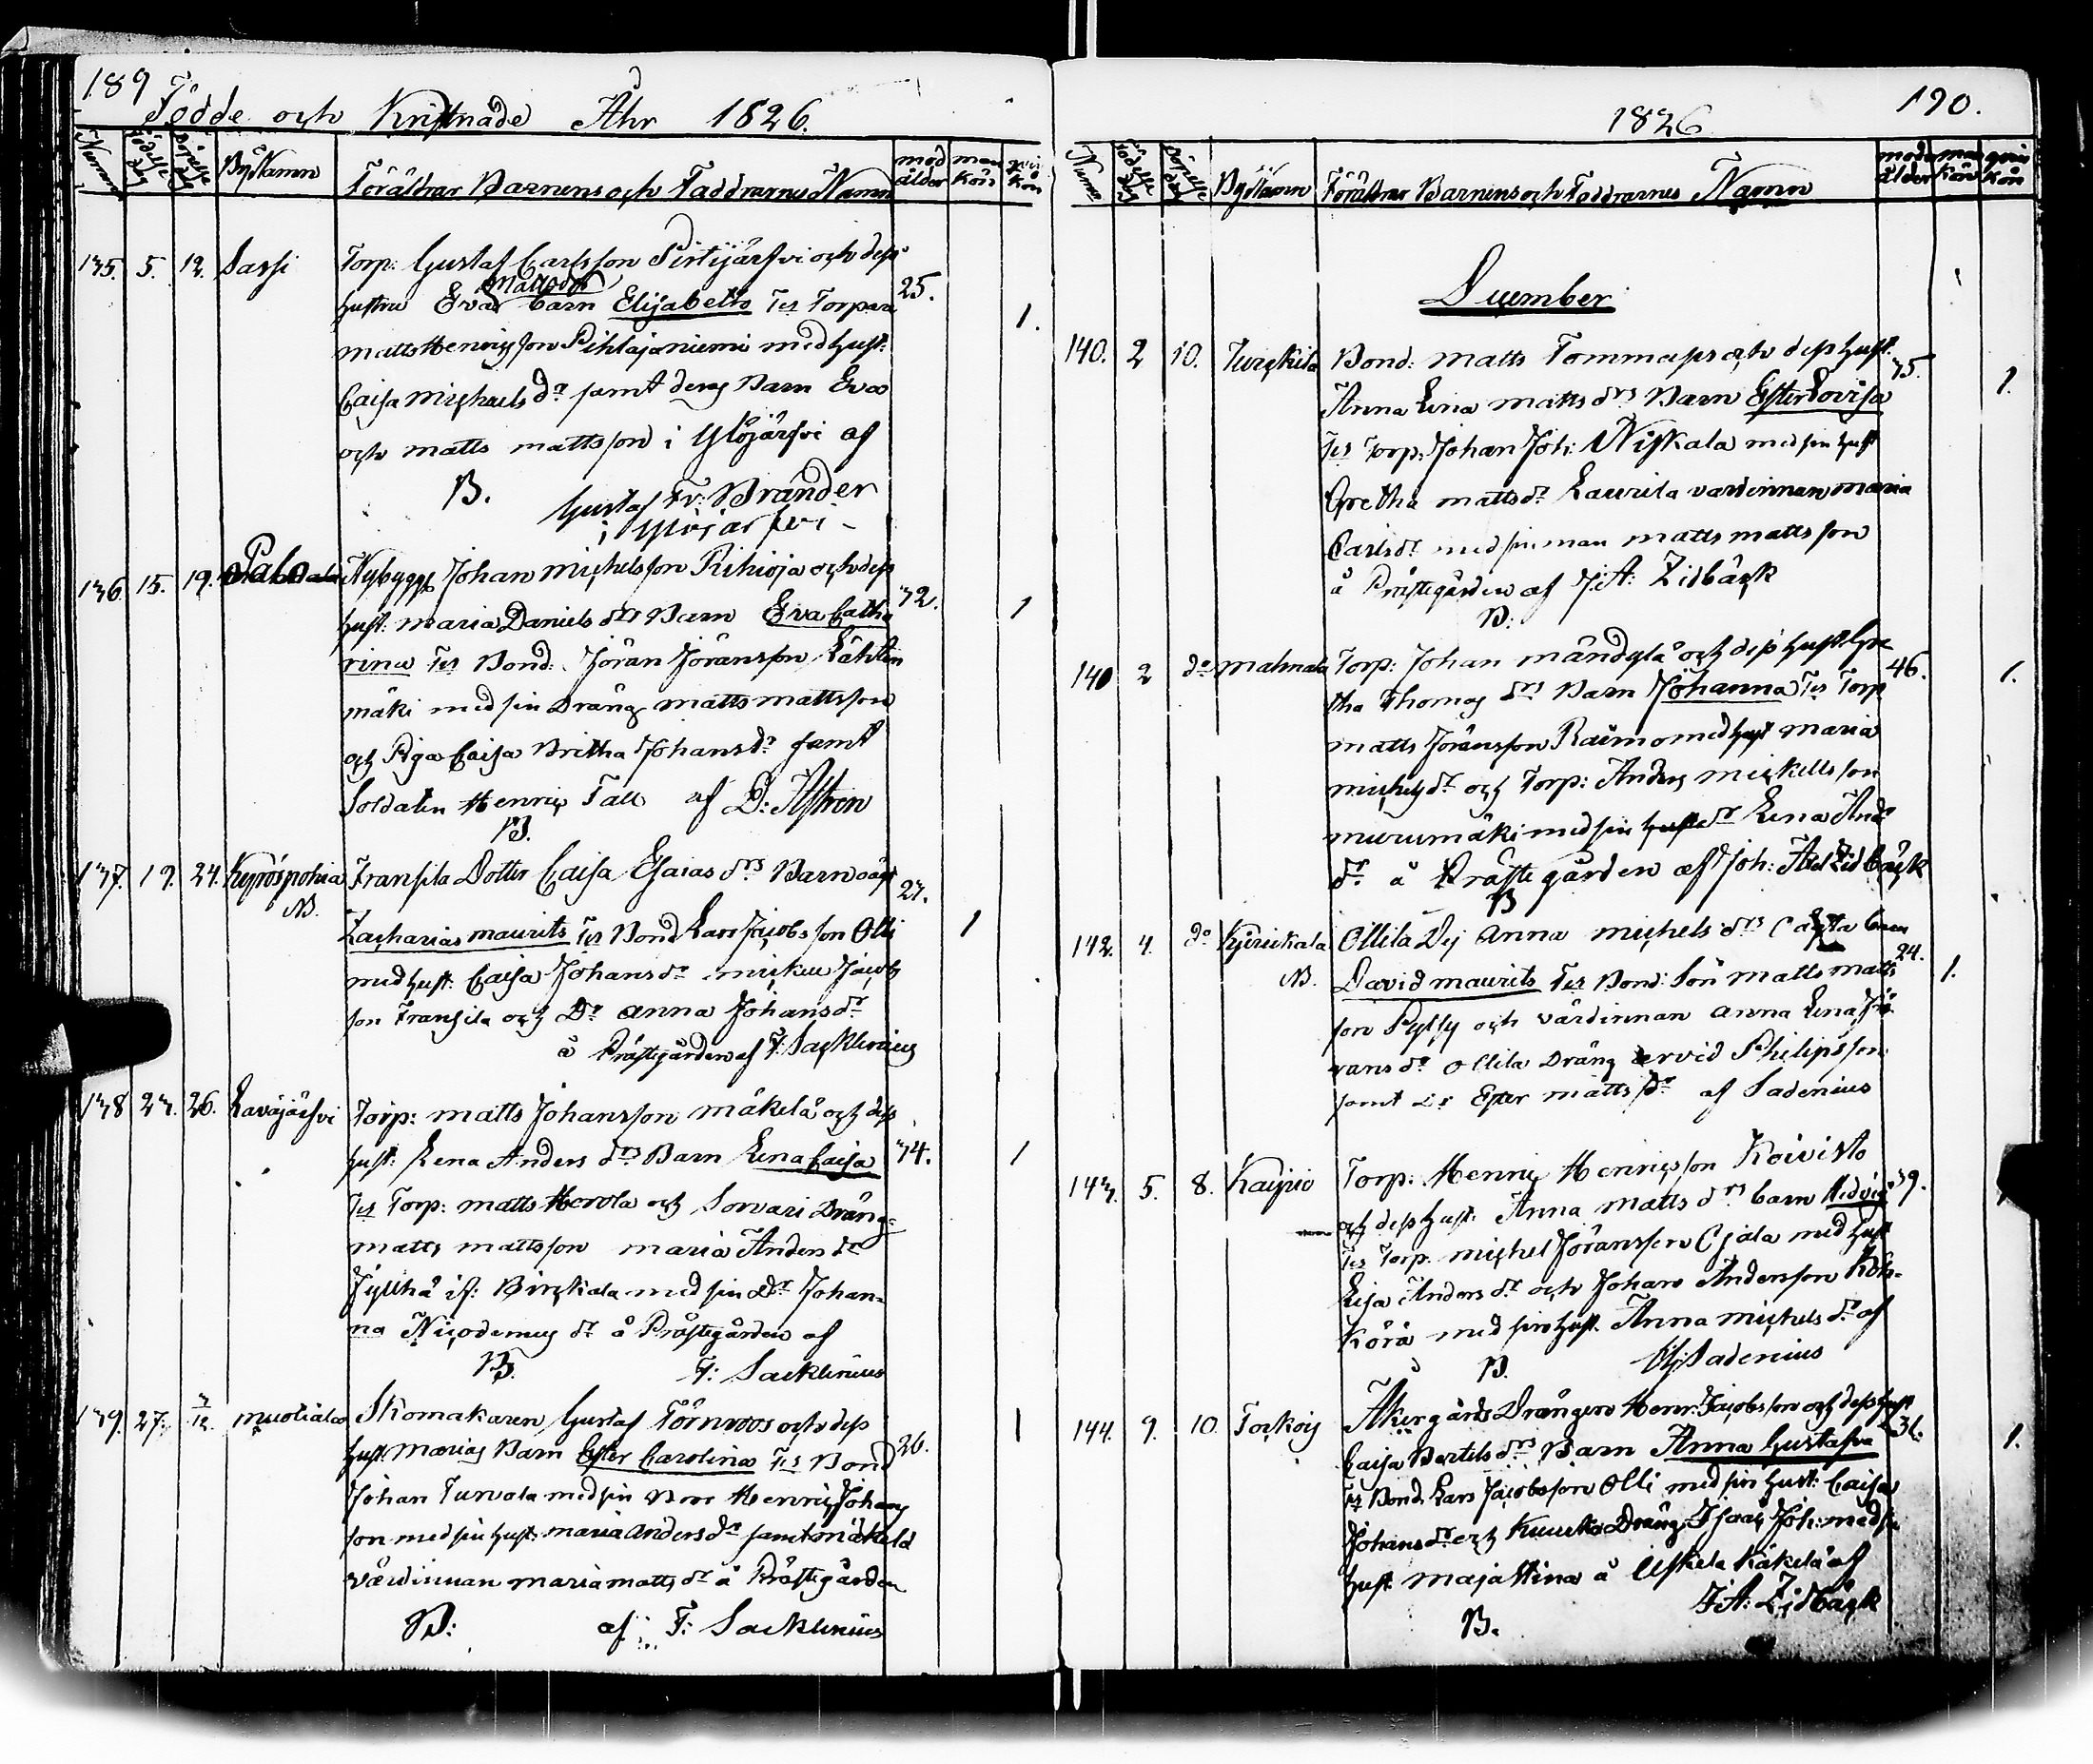 189
Födde och Kristnade Åhr 1826.
Numro Födelse dag Döpelse dag By Namn Föräldrar Barnens och Faddrarnes Namn mod ålder man kön qvin kön
135. 5. 12. Sassi Torp: Gustaf Carlsson Pirtijärfvi och dess 25.
Mattsdr
hustru Eva barn Elisabeth Tes Torpare 1.
Matts Henricsson Pihlajaniemi med hust:
Caisa Michaels dr samt deras Barn Eva
och Matts Mattsson i Ylöjärfvi af
B. Gustaf Fr: Brander
i Ylöjärfvi
136. 15. 19. Palo Nybygg: Johan Michelsson Rihioja och dess 32.
hust: Maria Daniels drs Barn Eva Catha 1
rina Tes Bond: Jöran Jöransson Lähten
mäki med sin Dräng Matts Mattsson
och Piga Caisa Britha Johans dr samt
Soldaten Henric Tall af D: Aström
B.
137. 19. 24. Kyröspohia Fransila Dotter Caisa Esaias drs Barn oägt 23.
NB.
Zacharias Maurits Tes Bond Lars Jacobsson Olli 1
med hust. Caisa Johans dr Mickel Jacobs
son Fransila och Dr Anna Johans dr
å Prästegården af F. Sacklenius
138 23. 26. Lavajärfvi Torp: Matts Johansson Mäkelä och dess
hust: Lena Anders drs Barn Lena Caisa 34. 1
Tes Torp: Matts Herola och Sorvari Dräng
Matts Mattsson Maria Anders dr
Jyllhä if: Birckala med sin Dr Johan-
na Nicodemus dr å Prästegården af
B. F: Sacklenius
139. 27. 3/12. Muotiala Skomakaren Gustaf Törnroos och dess 1
hust Marias Barn Ester Carolina Tes Bond 26.
Johan Turvola med sin Bror Henric Johans
son med sin hust: Maria Anders dr samt
värdinnan Maria Matts dr å Prästegården
B: af F: Sacklenius
190.
1826
Numro Födelse dag Döpelse dag By Namn Föräldrar Barnens och Faddrarnes Namn moder ålder man kön qvin kön
December
140. 2 10. Turckila Bond: Matts Tommass och dess hust. 35.
Anna Lena Matts drs Barn Ester Lovisa 1.
Tes Torp: Johan Joh: Niskala med sin hust
Gretha Matts dr Laurila värdinnan Maria
Carls dr med sin man Matts Mattsson
å Prästegården af J: A: Zidbäck
B:
140 2 do Malmala Torp: Johan Mändylä och dess hust Gre 46. 1.
tha Thomas drs Barn Johanna Tes Torp
Matts Jöransson Raimo med hust Maria
Michels dr och Torp: Anders Mickelsson
Murumäki med sin hust Lena And:
dr å Prästegården af Joh: Abr Zidbäck
B
142. 4. do Kyrickala Ollila Dej Anna Michels drs oägta barn 24.
NB. David Maurits Tes Bond: Son Matts Matts 1.
son Pylsy och värdinnan Anna Lena Jö
rans dr Ollila Dräng Arvid Philipsson
samt Dr Ester Matts dr af Sadenius
143. 5. 8. Kaipio Torp: Henric Henricsson Koivisto
och dess hust: Anna Matts drs barn Hedvig 39.
Tes Torp. Michel Jöransson Ojala med hust
Lisa Anders dr och Johan Andersson Kök-
körä med sin hust. Anna Michels dr af
B. Sadenius
144. 9. 10. Torkois Åkergårds Drängen Henr: Jacobsson och dess hust 36.
Caisa Bertels drs Barn Anna Gustafva 1.
Tes Bond Lars Jacobsson Olli med sin hust: Caisa
Johans dr och Dräng Isaac Joh: med sin
hust Maja Stina å Uskela Käkelä af
B. J A: Zidbäck